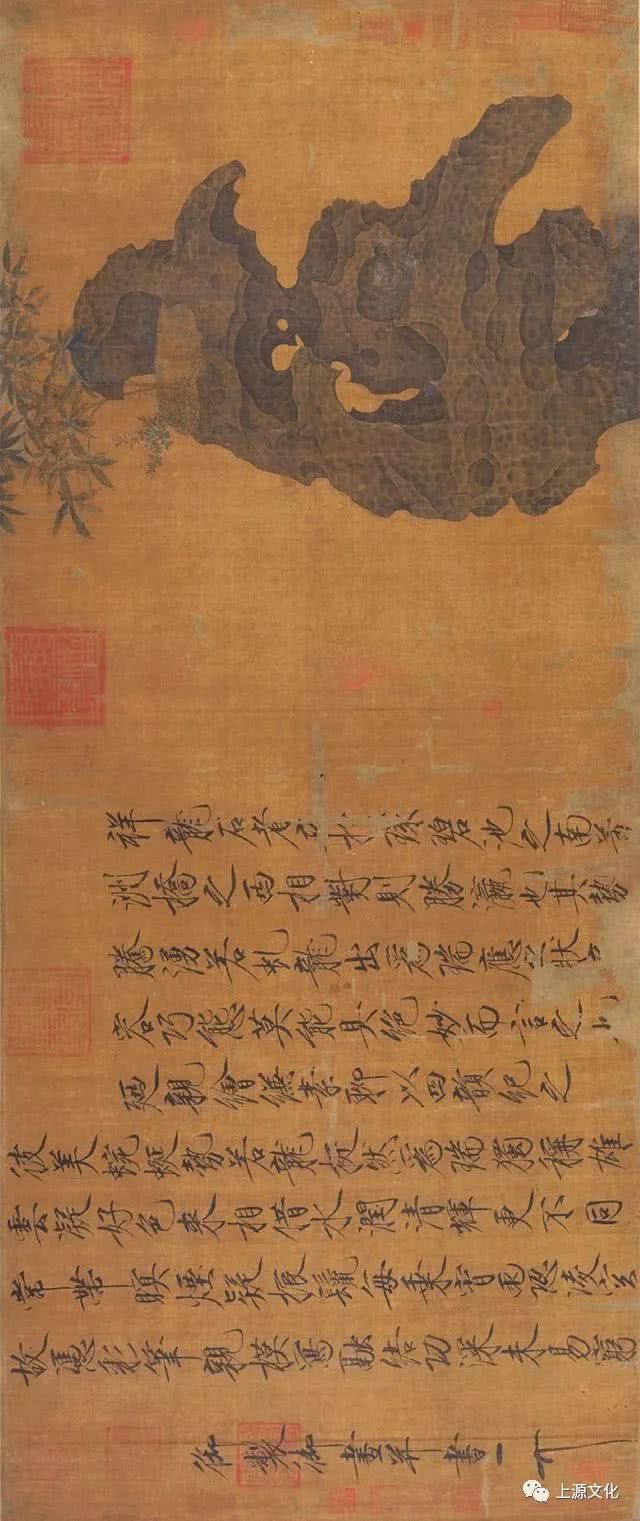 祥龍石者立於環碧池之南芳
洲橋之西相對則勝瀛也其勢
騰湧若虬龍出為瑞應之狀
容巧態莫能具絕妙而言之
廼親繪縑素聊以四韻紀之
彼美蜿蜒勢若龍挺然為瑞獨稱雄
雲凝好色來相借水潤清輝更不同
常帶暝煙疑振鬣每乘宵雨恐凌空
故憑彩筆親模寫融結功深未易窮
御製御畫并書
上源文化